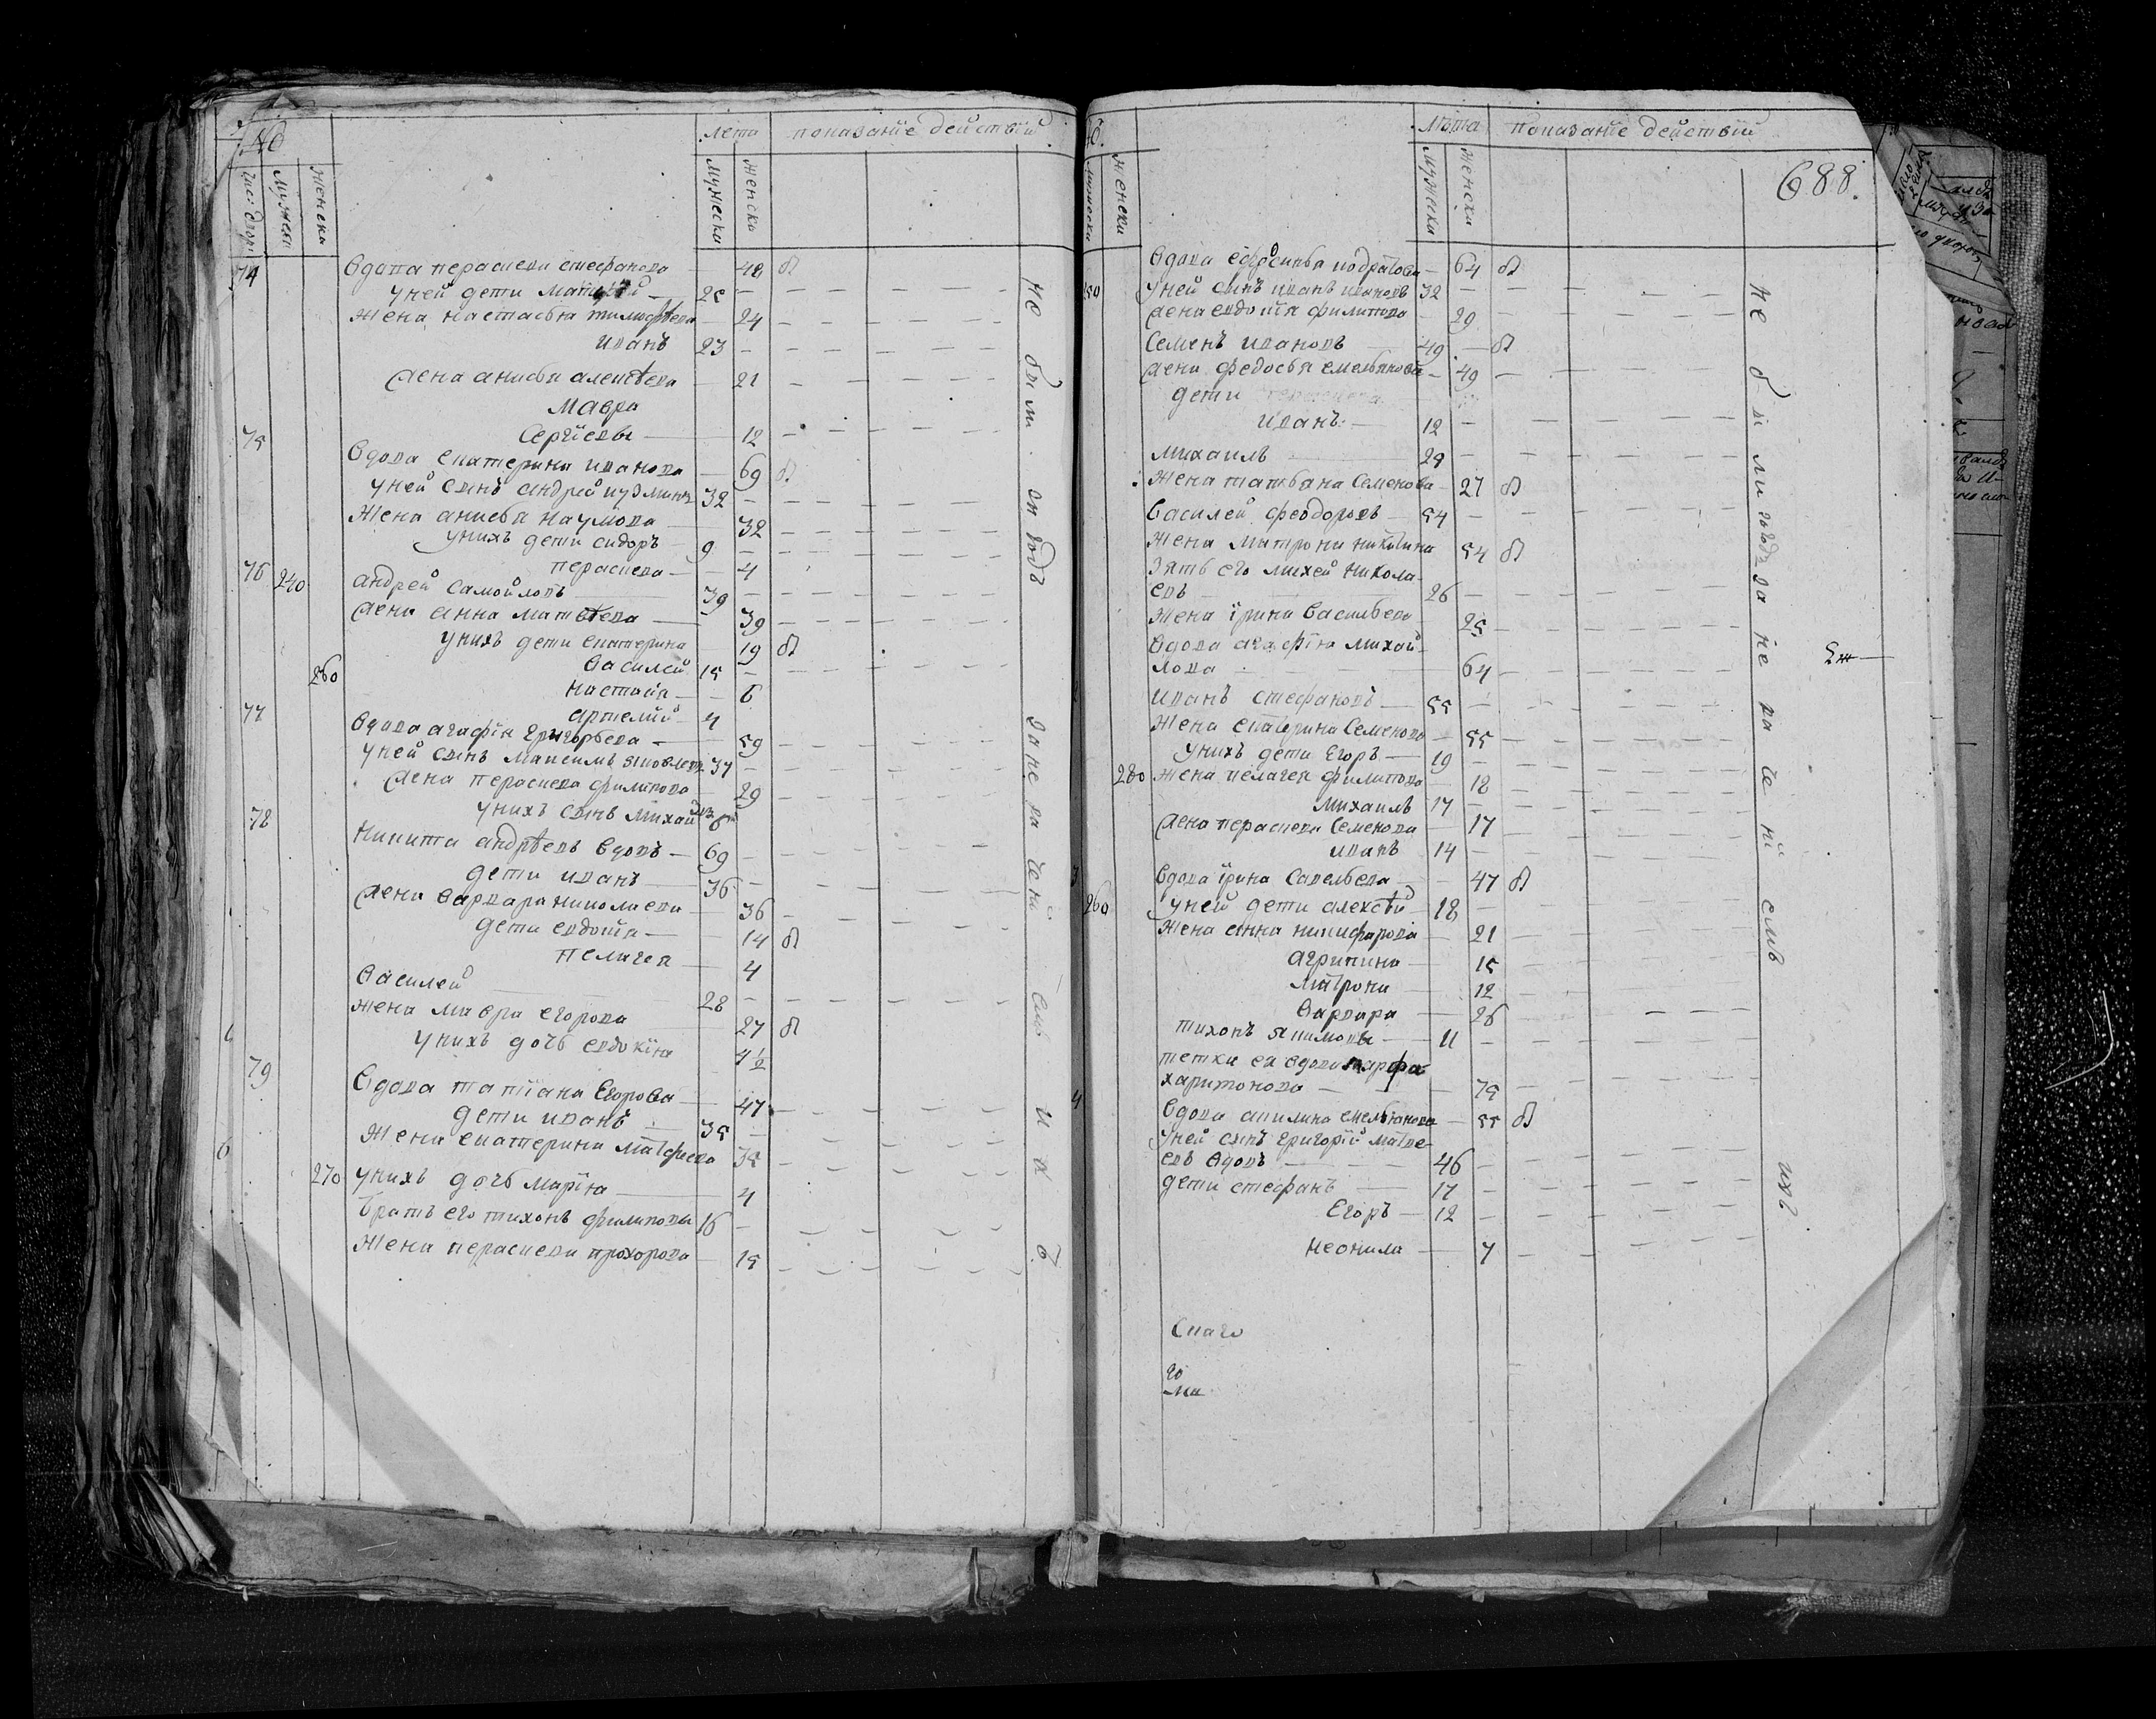 №
лета показанїе действїй
число дворо
мужеска
женска
мужеска
женска
74 вдова параскева стефанова 48 б
у ней дети матвей 25
жена настасья тимофѣева 24
иванъ 23
жена анисья алексѣева 21
мавра
Сергїевы 12
75 вдова екатерина иванова 69 б
у ней сынъ андрей кузминъ 32
жена анисья наумова 32
у нихъ дети сидоръ 9
параскева 4
76 240 андрей самойловъ 39
жена анна матвѣева 39
у нихъ дети екатерина 19 б
василей 15
260 настасїя 6
артемїй 4
77 вдова агафїя григорьева 59
у ней сынъ максимъ яковлевъ 37
жена параскева филипова 29
у нихъ сынъ михайла 6
78 никита андрѣевъ вдовъ 69
дети иванъ 36
жена варвара николаева 36
дети евдокїя 14 б
пелагея 4
василей 28
жена мавра егорова 27 б
у нихъ дочь евдокїя 4 1/2
79 вдова татїана егорова 47
дети иванъ 35
жена екатерина матфеева 35
270 у нихъ дочь марїя 4
братъ его тихонъ филиповы 16
жена параскева прохорова 15
не были
лета показанїе действїй
688.
мужеска
женска
мужеска
женска
вдова ефросинья кодратова 64 б
у ней сынъ иванъ ивановъ 32
жена евдокїя филипова 29
Семенъ ивановъ 49 б
жена федосья емельянова 49
дети
иванъ 12
михаилъ 29
жена татьяна семенова 27 б
василей феодоровъ 54
жена матрона никитина 54 б
зять его михей никола-
евъ 26
жена їрина васильева 25
вдова агафїя михай-
лова 64
иванъ стефановъ 55
жена екатерина семенова 55
у нихъ дети егоръ 19
280 жена пелагея филипова 18
михаилъ 17
жена параскева семенова 17
иванъ 14
вдова їрина савельева 47 б
260 у ней дети алексѣй 18
жена анна никифарова 21
агрипина 15
матрона 12
варвара 26
тихонъ якимовы 11
тетка ея вдова марфа
харитонова 75
вдова акилина емельянова 55 б
у ней сынъ григорїй матве-
евъ вдовъ 46
дети стефанъ 17
егоръ 12
неонила 7
не были
ихъ